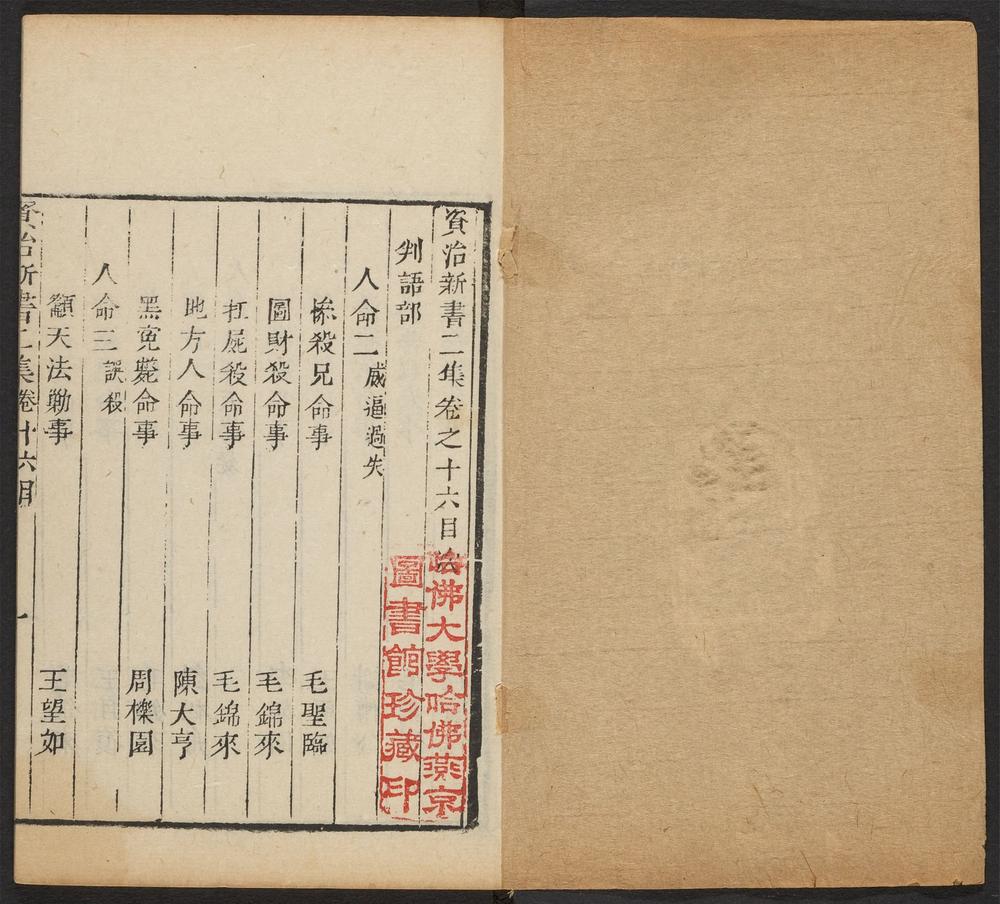 資治新書二集卷之十六目次
判語部
人命二 威逼過失
慘殺兄命事 毛聖臨
圖財殺命事 毛錦來
扛屍殺命事 毛錦來
地方人命事 陳大亨
黑寃斃命事 周櫟園
人命三 誤殺
籲天法勦事 王望如
資治新書二集卷十六目 一
哈佛大學哈佛燕京
圖書館珍藏印